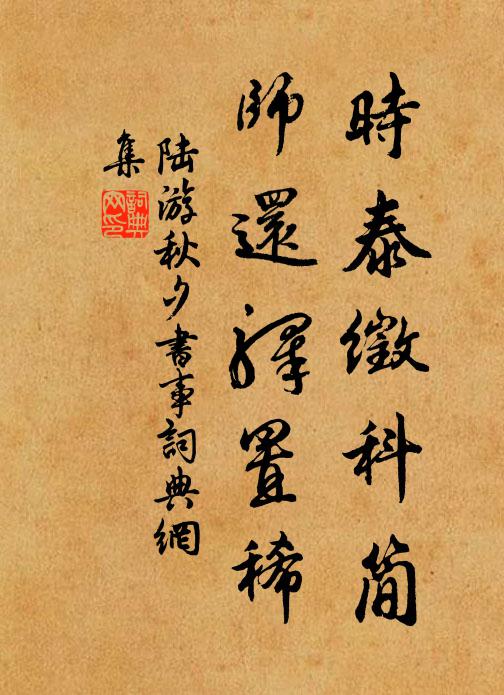 時泰徵科簡
師還驛置稀
陸游秋夕書事詞典網
集
詞典
网印